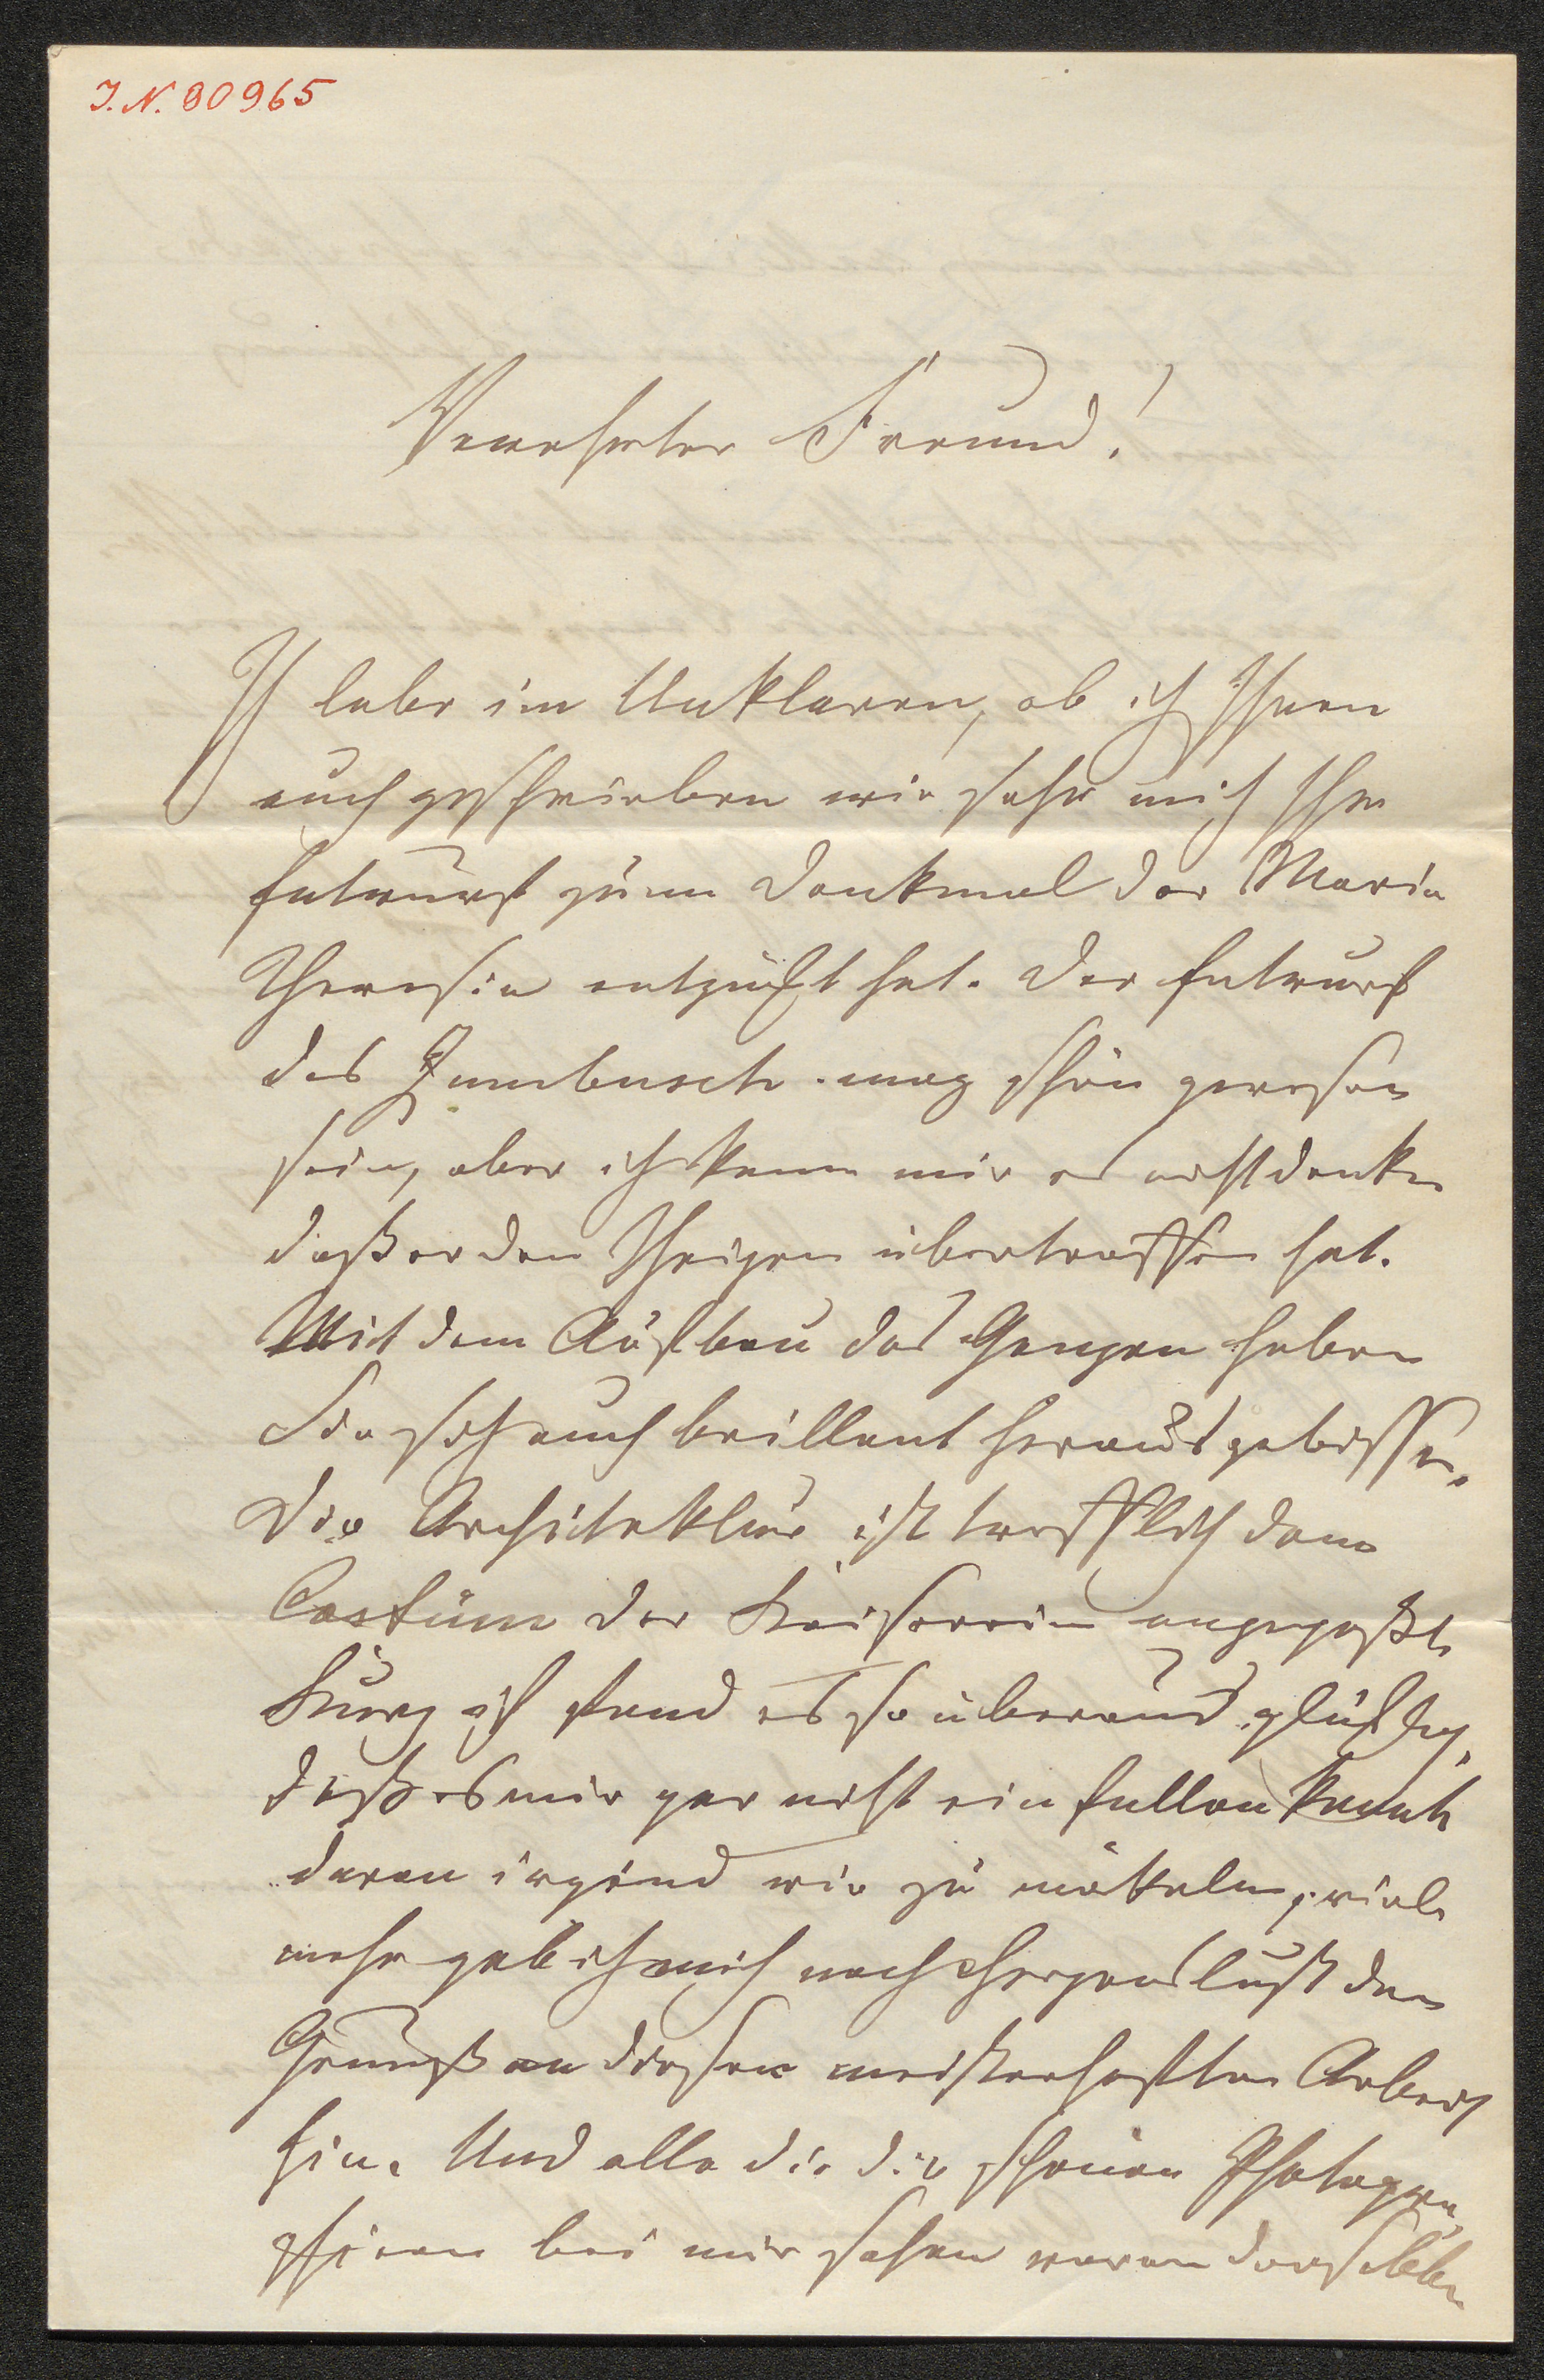 J. N. 80965
Verehrter Freund!
Ich lebe im Unklaren, ob ich Ihnen
auch geschrieben wie sehr mich Ihr
Entwurf zum Denkmal der Maria
Theresia entzückt hat. Der Entwurf
des Zumbusch mag schön gewesen
sein, aber ich kann mir es nicht denken
daß er den Ihrigen übertroffen hat.
Mit dem Aufbau des Ganzen haben
Sie sich auch brillant herausgebissen.
Die Architektur ist trefflich dem
Costüm der Kaiserin angepaßt
Kurz ich fand es so überaus glücklich,
daß es mir gar nicht einfallen konnte
daran irgend wie zu mäkeln, viel
mehr gab ich mich nach Herzenslust dem
Genuß an dieser meisterhaften Arbeit
hin. Und alle die die schönen Photogra
phieen bei mir sahen waren derselben